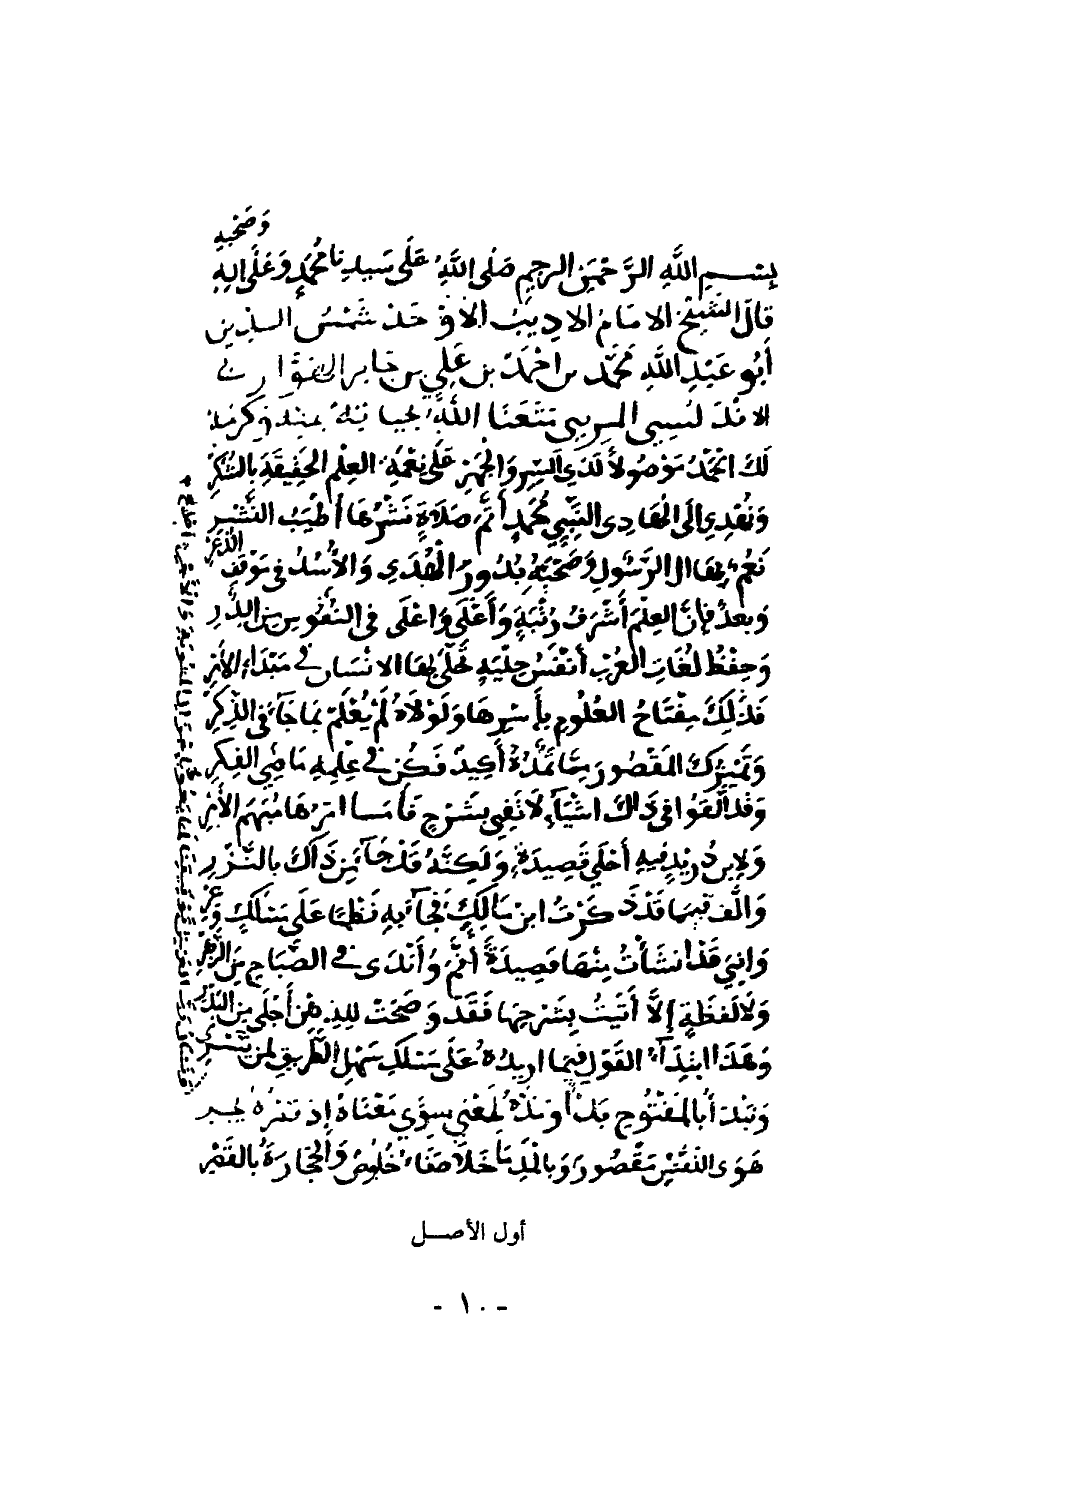 وَصَحْبِهِ
بِسْمِ اللَّهِ الرَّحْمَنِ الرَّحِيمِ صَلَّى اللَّهُ عَلَى سَيِّدِنَا مُحَمَّدٍ وَعَلَى آلِهِ
قَالَ الشَّيْخُ الامَامُ الاديبُ الأوْحَدُ شَمْسُ الدين
أَبُو عَبْدِ اللَّهِ مُحَمَّد بن احْمَدَ بن عَلِي بن جَابر الهَوَّارِي
الاندلسي المريي مَتَّعَنَا اللَّهُ بحياته بمنه وكرمه
لَكَ الحَمْدُ مَوْصُولاً لَدَى السِّرِ وَالجَهْرِ عَلَى نِعْمَةِ العِلْمِ الحَقِيقَةِ بِالشُّكْرِ
وَنُهْدِي إلَى الهَادِي النَّبِيِّ مُحَمَّدٍ أَتَمَّ صَلَاةٍ نَشْرُهَا أَطْيَبُ النَّشْرِ
نَعُمُّ بِهَا آل الرَّسُولِ وَصَحْبَهُ بُدُورَ الْهُدَى وَالأُسْدُ فِي مَوْقِفِ الذُّعْرِ
وَبَعدُ فَإِنَّ العِلْمَ أَشْرَفُ رُتْبَةٍ وَأَغْلَى وَاعْلَى فِي النُّفُوسِ مِنَ الدُّرِ
وَحِفْظُ لُغَاتِ العُرْبِ أَنْفَسُ حِلْيَةٍ تَحَلَّى بِهَا الانْسَان في مَبْدَاءِ الأَمْرِ
فَذَلِكَ مِفْتَاحُ العُلُومِ بِأَسْرِهَا وَلَوْلَاهُ لَمْ يُعْلَمْ بِمَا جَآءَ فِي الذِّكْرِ
وَتَمْيِيزُكَ المَقْصُورَ مِمَّا تَمُدُّهُ أَكِيدٌ فَكُنْ فِي عِلْمِهِ مَاضِيَ الفِكْرِ
وَقَد أَلَّفَوا فِي ذَاكَ اشْيَآءَ لَا تَفِي بِشَرْحٍ فَأَمْسَا امْرُهَا مُبْهَمَ الأَمْرِ
وَلِابنِ دُرَيْدٍ فِيهِ أَحْلَى قَصِيدَةٍ وَلَكِنَّهُ قَدْ جَآءَ مِن ذَاكَ بِالنَّزْرِ
وَالَّف فِيمَا قَدْ ذَكَرْتُ ابن مَالِكٍ فَجَآءَ بِهِ نَظْمًا عَلَى مَسْلَكٍ وَعْرِ
وَانِيَ قَدْ انشَأْتُ مِنْهَا قَصِيدَةً أَنَمَّ وَأَنْدَى فِي الصَّبَاحِ مِنَ الزَّهْرِ
وَلَا لَفْظَةٍ إِلَّا أَتَيْتُ بِشَرْحِهَا فَقَدْ وَضَحَتْ لِلذِهْنِ أَجْلَى مِنَ البَدْرِ
وَهَذَا ابْتِدَآءُ القَوْلِ فِيمَا اريدُهُ عَلَى مَسْلَكٍ سَهْلِ الطَّرِيقِ لِمَنْ يَسْرِي
وَنَبْدَأُ بِالمَفْتُوحِ بَدْأً وَمَدُّهُ لِمَعْنًى سِوَى مَعْنَاهُ إِذ
هَوَى النَّفْسِ مَقْصُورَ وَبِالمَدِّ مَا خَلَا صَفَاءُ خُلُوصٌ وَالحِجَارَةُ بِالقَصْرِ
أول الأصـــل
- ١٠ -